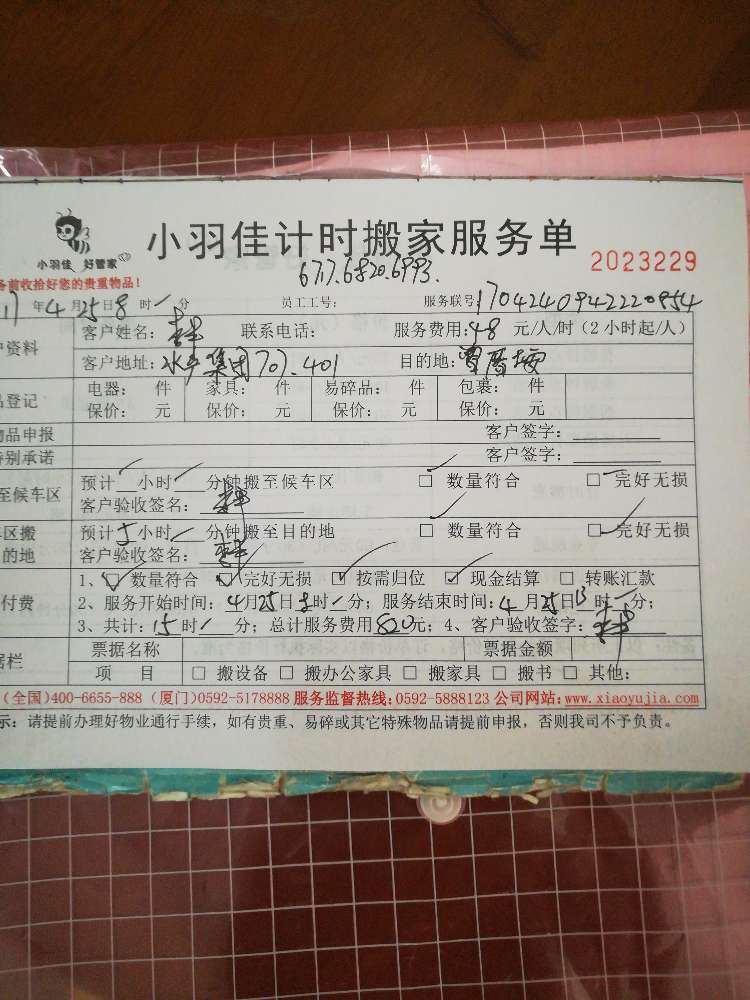 小羽佳计时搬家服务单
小羽佳 好管家
2023229
务前收拾好您的贵重物品!
6717.6820.6993.
17年4月25日8时/分 员工工号: 服务联号:1704240942220954
客户姓名: 联系电话: 服务费用:48元/人/时(2小时起/人)
户资料
客户地址:水产集团707.401 目的地:
电器: 件 家具: 件 易碎品: 件 包裹: 件
品登记
保价: 元 保价: 元 保价: 元 保价: 元
物品申报 客户签字:
特别承诺 客户签字:
预计 小时 分钟搬至候车区 □ 数量符合 □ 完好无损
至候车区
客户验收签名:
车区搬 预计5小时 分钟搬至目的地 □ 数量符合 □ 完好无损
目的地 客户验收签名:
1、☑ 数量符合 ☑ 完好无损 ☑ 按需归位 ☑ 现金结算 □ 转账汇款
付费 2、服务开始时间:4月25日8时/分;服务结束时间:4月25日13时/分;
3、共计:15时/分;总计服务费用820元;4、客户验收签字:
票据名称 票据金额
据栏
项 目 □ 搬设备 □ 搬办公家具 □ 搬家具 □ 搬书 □ 其他:
(全国)400-6655-888 (厦门)0592-5178888 服务监督热线:0592-5888123 公司网站:www.xiaoyujia.com
示:请提前办理好物业通行手续,如有贵重、易碎或其它特殊物品请提前申报,否则我司不予负责。